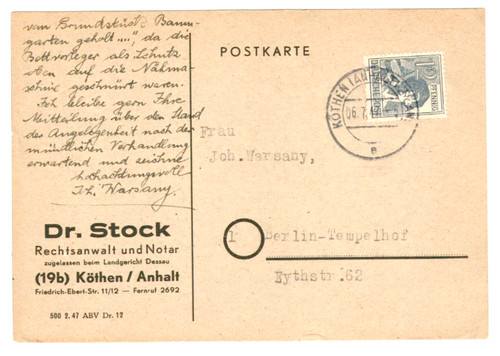 vom Grundstück Baum-
garten geholt...", da die
Bettvorleger als Schutz
oben auf die Nähma-
schine geschnürt waren.
Ich bleibe gern Ihre
Mitteilung über den Stand
der Angelegenheit nach der
mündlichen Verhandlung
erwartend und zeichne
hochachtungsvoll
Warsany.
Dr. Stock
Rechtsanwalt und Notar
zugelassen beim Landgericht Dessau
(19b) Köthen / Anhalt
Friedrich-Ebert-Str. 11/12 — Fernruf 2692
500 2.47 ABV Dr. 12
POSTKARTE
KÖTHEN (ANHALT)
06.7.47
e
12
PFENNIG
DEUTSCHE POST
Frau
Joh. Warsany,
1 Berlin-Tempelhof
Eythstr. 62